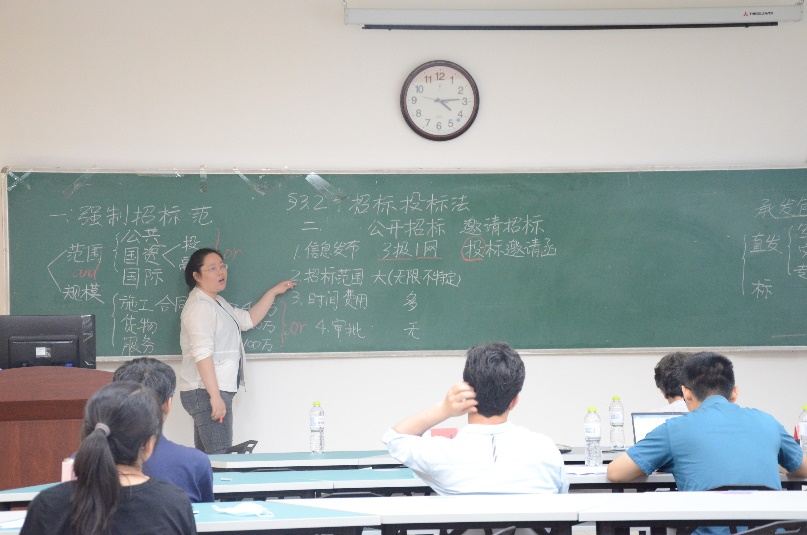 §3.2 招标投标法
一. 强制招标 范
范围
and
规模
公共
国资
国际
投
or
施工合同
货物
服务
100万
or
二. 公开招标 邀请招标
1. 信息发布 3报1网 投标邀请函
2. 招标范围 大(无限 不特定)
3. 时间费用 多
4. 审批 无
直发
标
12
1
2
3
4
5
6
7
8
9
10
11